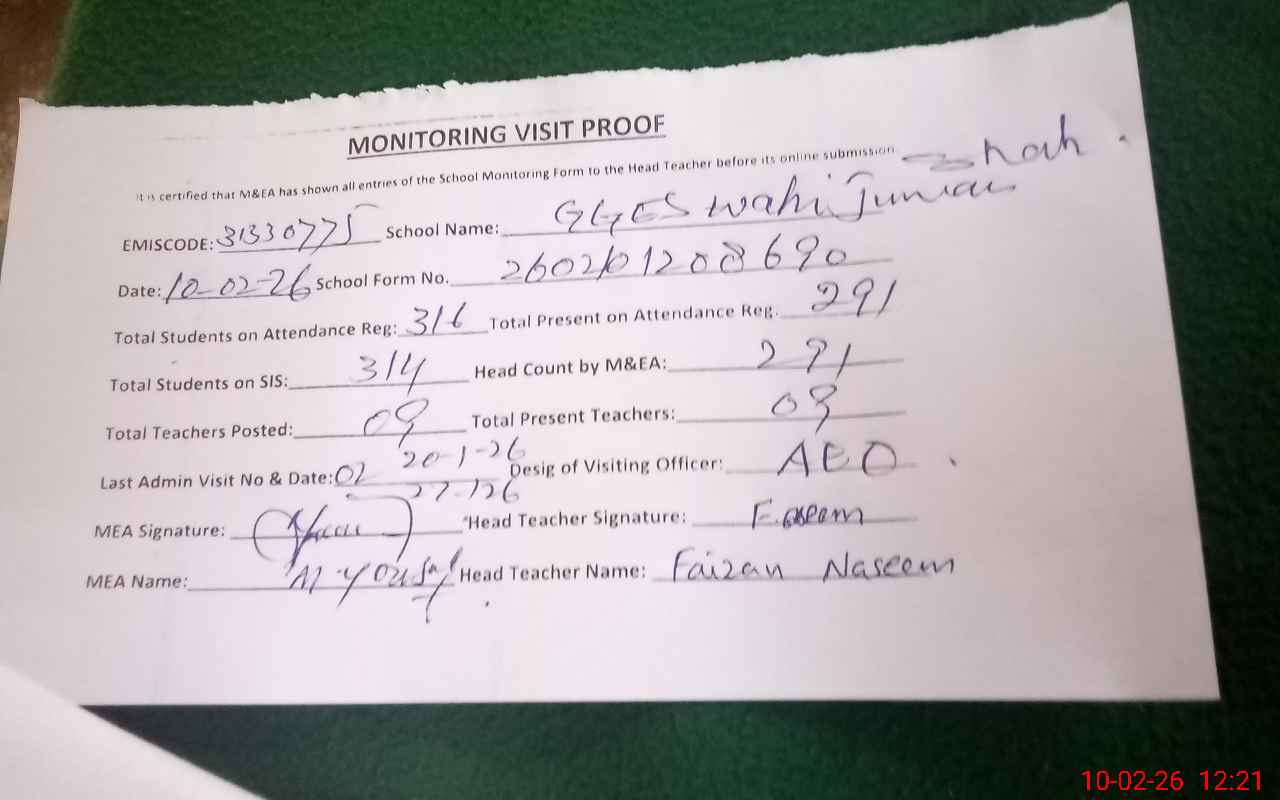 MONITORING VISIT PROOF
It is certified that M&EA has shown all entries of the School Monitoring Form to the Head Teacher before its online submission.
EMISCODE: 31330775 School Name: GGES Wahi Jumian Shah.
Date: 10-02-26 School Form No. 2602101208690
Total Students on Attendance Reg: 316 Total Present on Attendance Reg. 291
Total Students on SIS: 314 Head Count by M&EA: 291
Total Teachers Posted: 09 Total Present Teachers: 09
Last Admin Visit No & Date: 02 20-1-26 27-1-26 Desig of Visiting Officer: AEO.
MEA Signature: Head Teacher Signature: F.aseem
MEA Name: M. Yousaf Head Teacher Name: Faizan Naseem
10-02-26 12:21